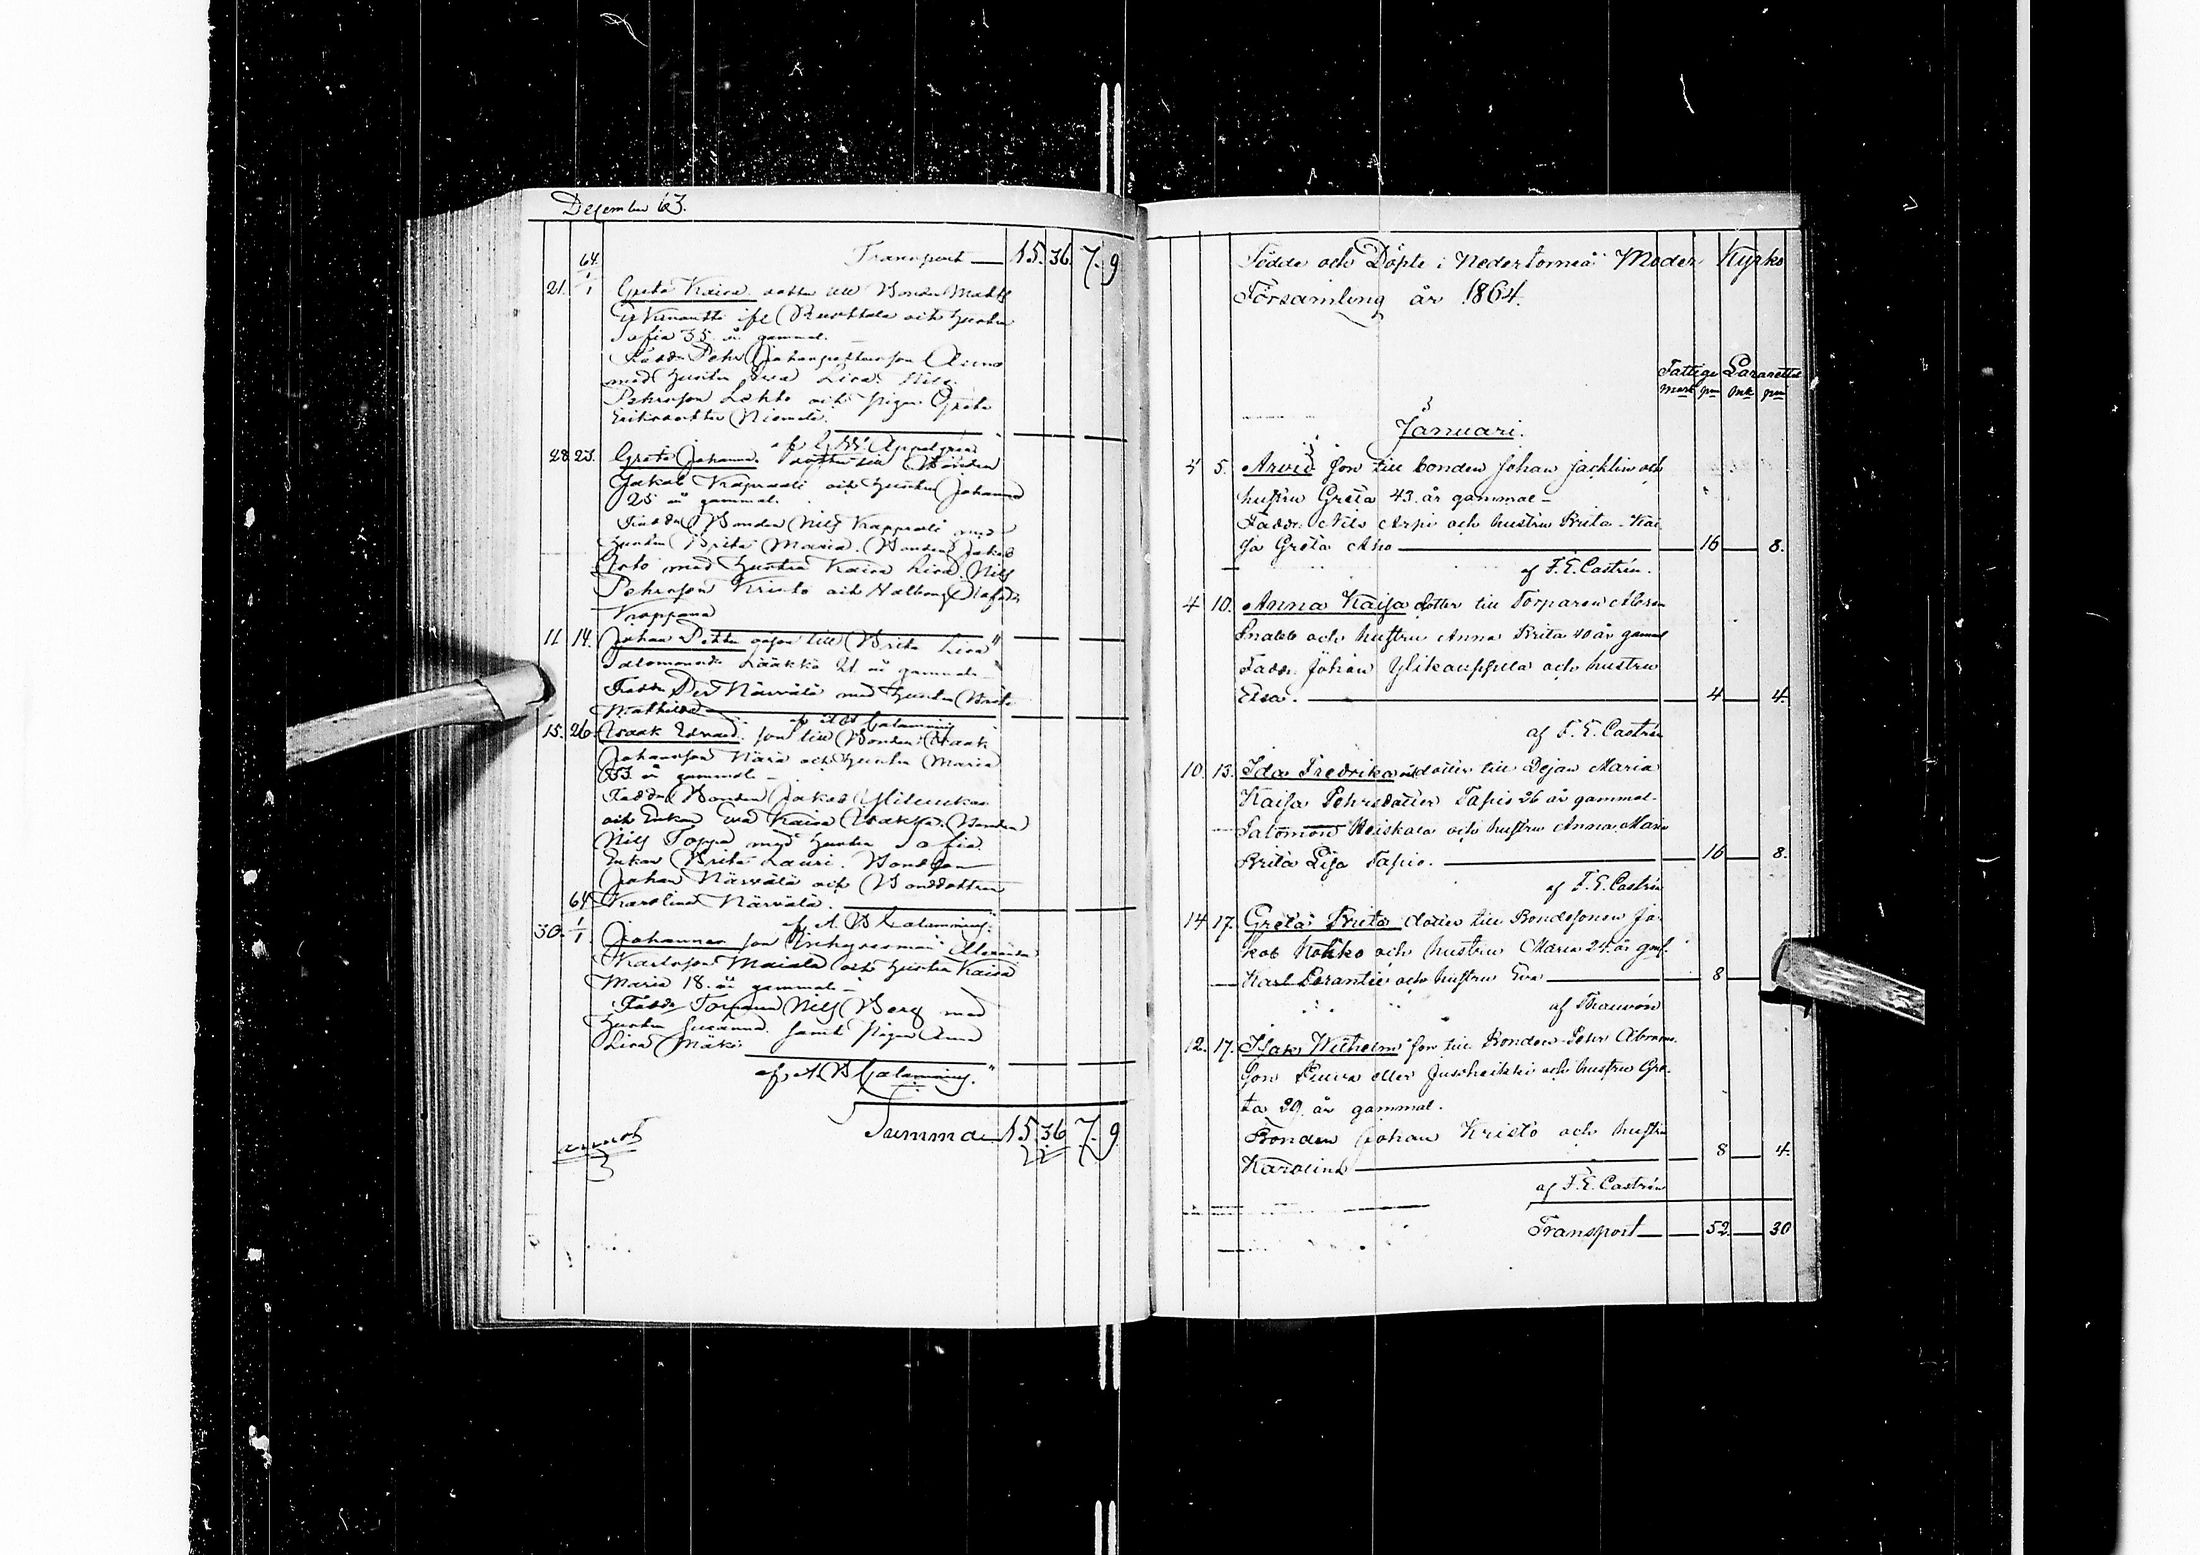 Desember 63.
Transport 15. 36. 7. 9
64
21. 1/1 Greta Kaisa dotter till Bonden Matts
och hustru
Sofia 35 år gammal.
Fadd. Pehr Alamo
med hustru Eva Lisa. Nils
Pehrsson Lohko och pigan Greta
Eriksdotter Niemelä.
af
28 23. Greta Johanna dotter till Bonden
Jakob Krappasti och hustru Johanna
25 år gammal.
Fadd. Bonden Nils Krappasti med
hustru Brita Maria. Bonden Jakob
Arto med hustru Kaisa Lisa. Nils
Pehrsson Kristo och
Kroppana
11 14. Johan Pettu oäson till Brita Lisa
Salomonsd. Lääkkö 21 år gammal
Fadd. Per Närvälä med hustru Brita
Mathilda
af A B Calamnius
15. 26. Isaak Edvard son till Bonden Isaak
Johansson Nära och hustru Maria
33 år gammal
Fadd. Bonden Jakob
och Enkan Eva Kaisa Bonden
Nils Toppa med hustru Sofia
Enkan Brita Lauri. Bondson
Johan Närvälä och Bonddottren
Karolina Närvälä.
af A B Calamnius.
64
30. 1/1 Johannes son Inhysesman
Karlsson Maiala och hustru Kaisa
Maria 18. år gammal
Fadd. Torparen Nils Berg med
hustru Susanna samt pigan Anna
Lisa Mäki
af A B Calamnius.
Summa 15. 36 7. 9
Födde och Döpte i Nedertorneå Moder Kyrko
Församling år 1864.
Fattige Lazarettet
mark pni mk pni
Januari.
4 5. Arvid son till bonden Johan Jacklin och
hustru Greta 43. år gammal
Fadd. Nils Arpi och hustru Brita Kai
sa Greta Aho 16 8.
af F. E. Castrén.
4 10. Anna Kaisa dotter till Torparen Abram
Snabb och hustru Anna Brita 40 år gammal
Fadd. Johan Ylikauppila och hustru
Elsa. 4 4.
af F. E. Castrén
10. 13. Ida Fredrika oädotter till Dejan Maria
Kaisa Pehrsdotter Tapio 26 år gammal.
Salomon Heiskala och hustru Anna Maria
Brita Lisa Tapio. 16 8.
af F. E. Castrén
14 17. Greta Brita dotter till Bondesonen Ja
kob Kokko och hustru Maria 24. år gml.
Karl Lorantie och hustru Eva 8
af
12. 17. Isak Wilhelm son till Bonden Pehr Abrams
son eller och hustru Gre
ta 29. år gammal.
Bonden Johan Kristo och hustru 8 4.
Karolina
af F. E. Castrén
Transport 52. 30